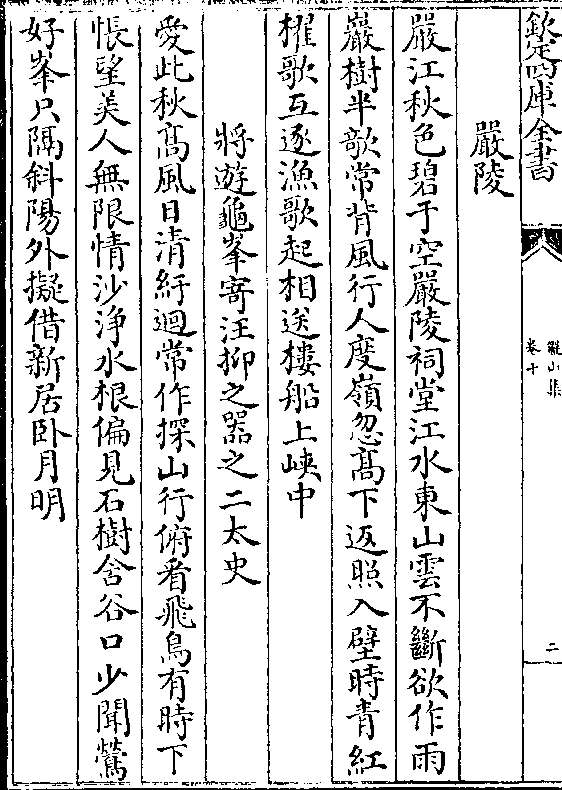 欽定四庫全書
卷十
二
嚴陵
嚴江秋色碧于空嚴陵祠堂江水東山雲不斷欲作雨
巖樹半欹常背風行人度嶺忽髙下返照入壁時青紅
櫂歌互逐漁歌起相送樓船上峽中
將遊龜峯寄汪抑之器之二太史
愛此秋髙風日清紆迴常作探山行俯看飛鳥有時下
悵望美人無限情沙浄水根偏見石樹含谷口少聞鶯
好峯只隔斜陽外擬借新居卧月明